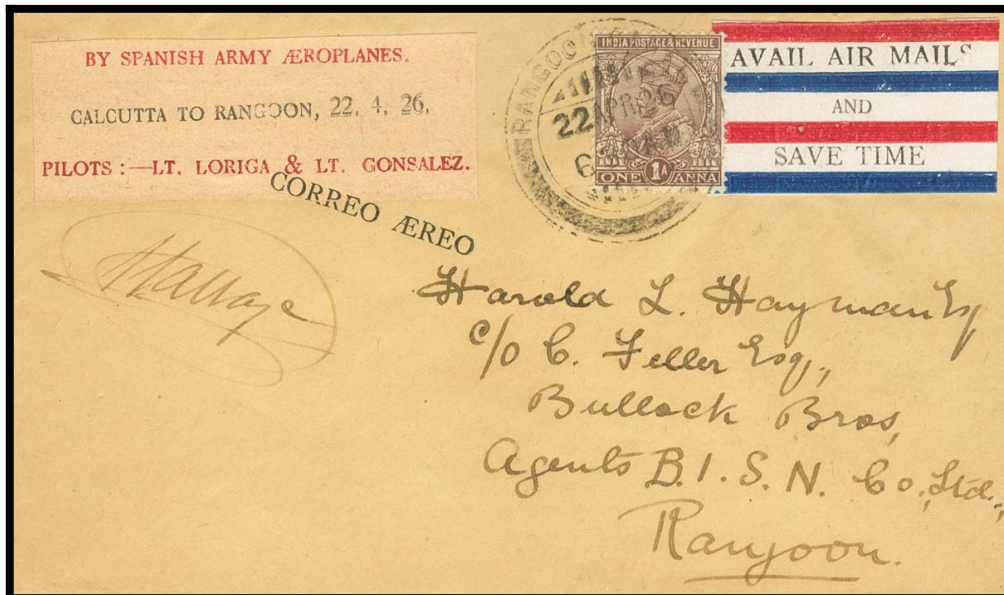 BY SPANISH ARMY ÆROPLANES.
CALCUTTA TO RANGOON, 22. 4. 26.
PILOTS :—LT. LORIGA & LT. GONSALEZ.
CORREO ÆREO
INDIA POSTAGE & REVENUE
ONE 1A ANNA
RANGOON
22 APR 26
6
AVAIL AIR MAILS
AND
SAVE TIME
Harold L. Hayman Esq
c/o C. Feller Esq.,
Bullock Bros,
Agents B.I.S.N. Co, Ltd.,
Rangoon.